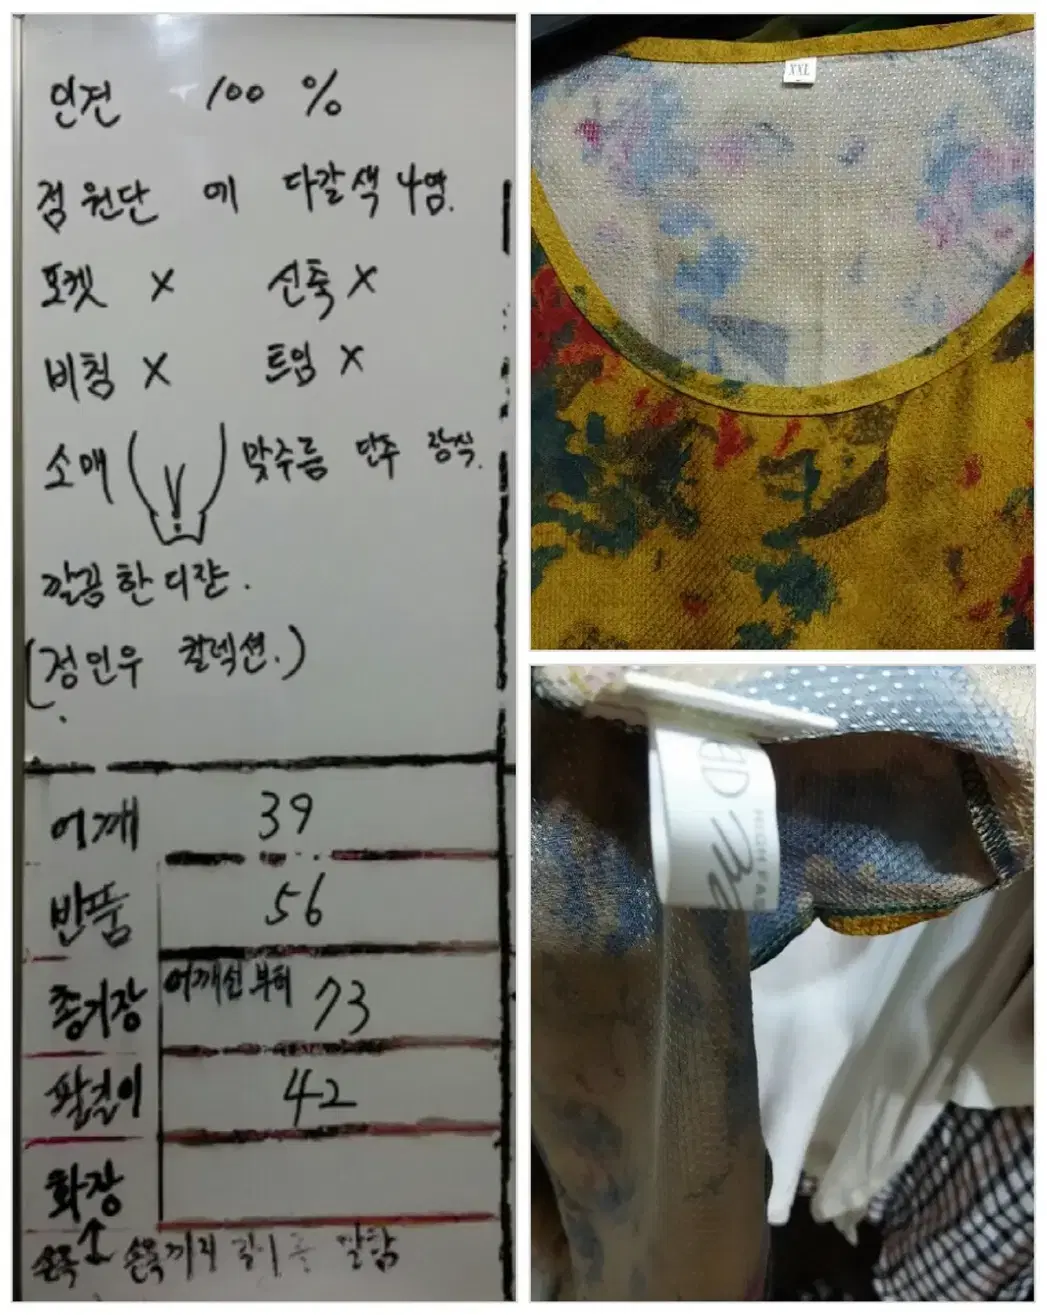 인견 100 %
점 원단 에 다갈색 나염.
포켓 X 신축 X
비침 X 트임 X
소매 맞주름 단추 장식.
깔끔한 디쟌.
(정인우 컬렉션.)
어깨 39
반품 56
총기장 어깨선 부터 73
팔길이 42
화장
손목 ↑ 손목까지 말함
XXL
HIGH FAS